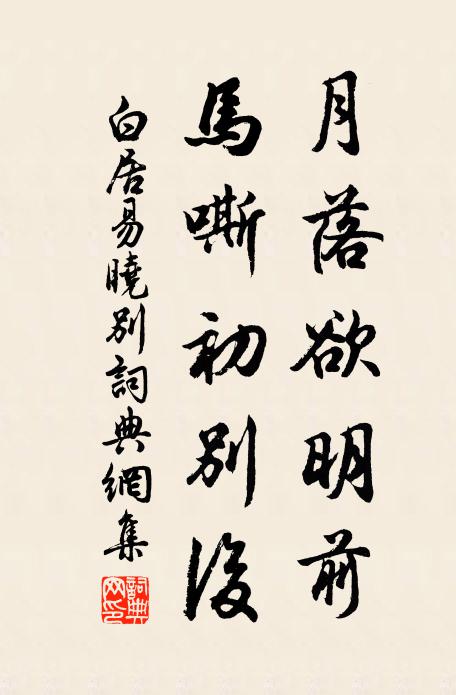 月落欲明前
馬嘶初別後
白居易曉別詞典網集
詞典網印